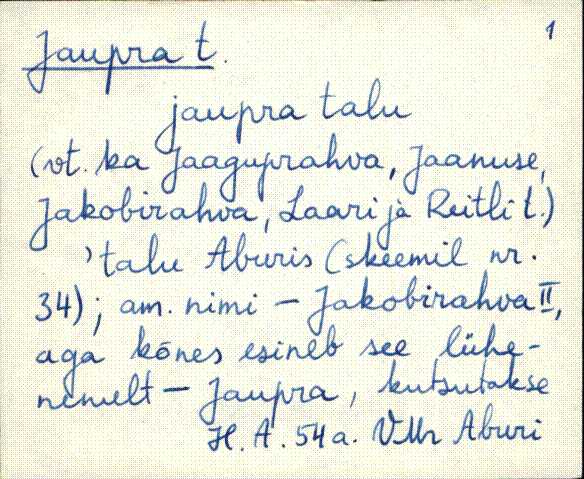 1
Jaupra t.
jaupra talu
(vt. ka Jaaguprahva, Jaanuse,
Jakobirahva, Laari ja Reitli t.)
'talu Aburis (skeemil nr.
34); am. nimi – Jakobirahva II,
aga kõnes esineb see lühe-
nemelt – Jaupra, kutsutakse
H. A. 54 a. VMr Aburi